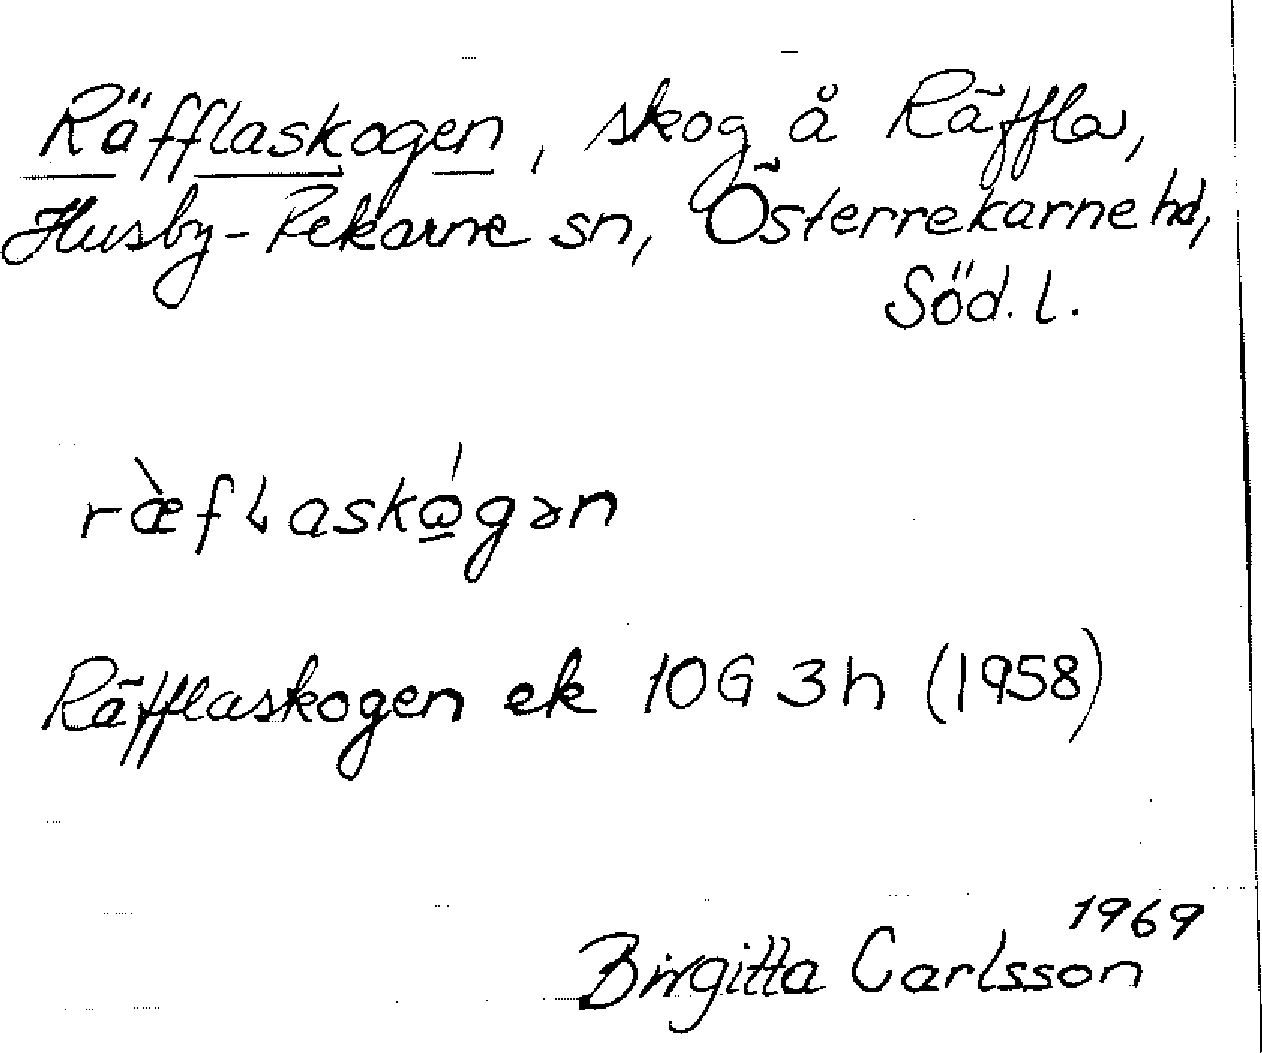 Räfflaskogen, skog å Räffla,
Husby-Rekarne sn, Österrekarne hd,
Söd. l.
ræ̀fLaskώ̲gən
Räfflaskogen ek 10G 3h (1958)
1969
Birgitta Carlsson